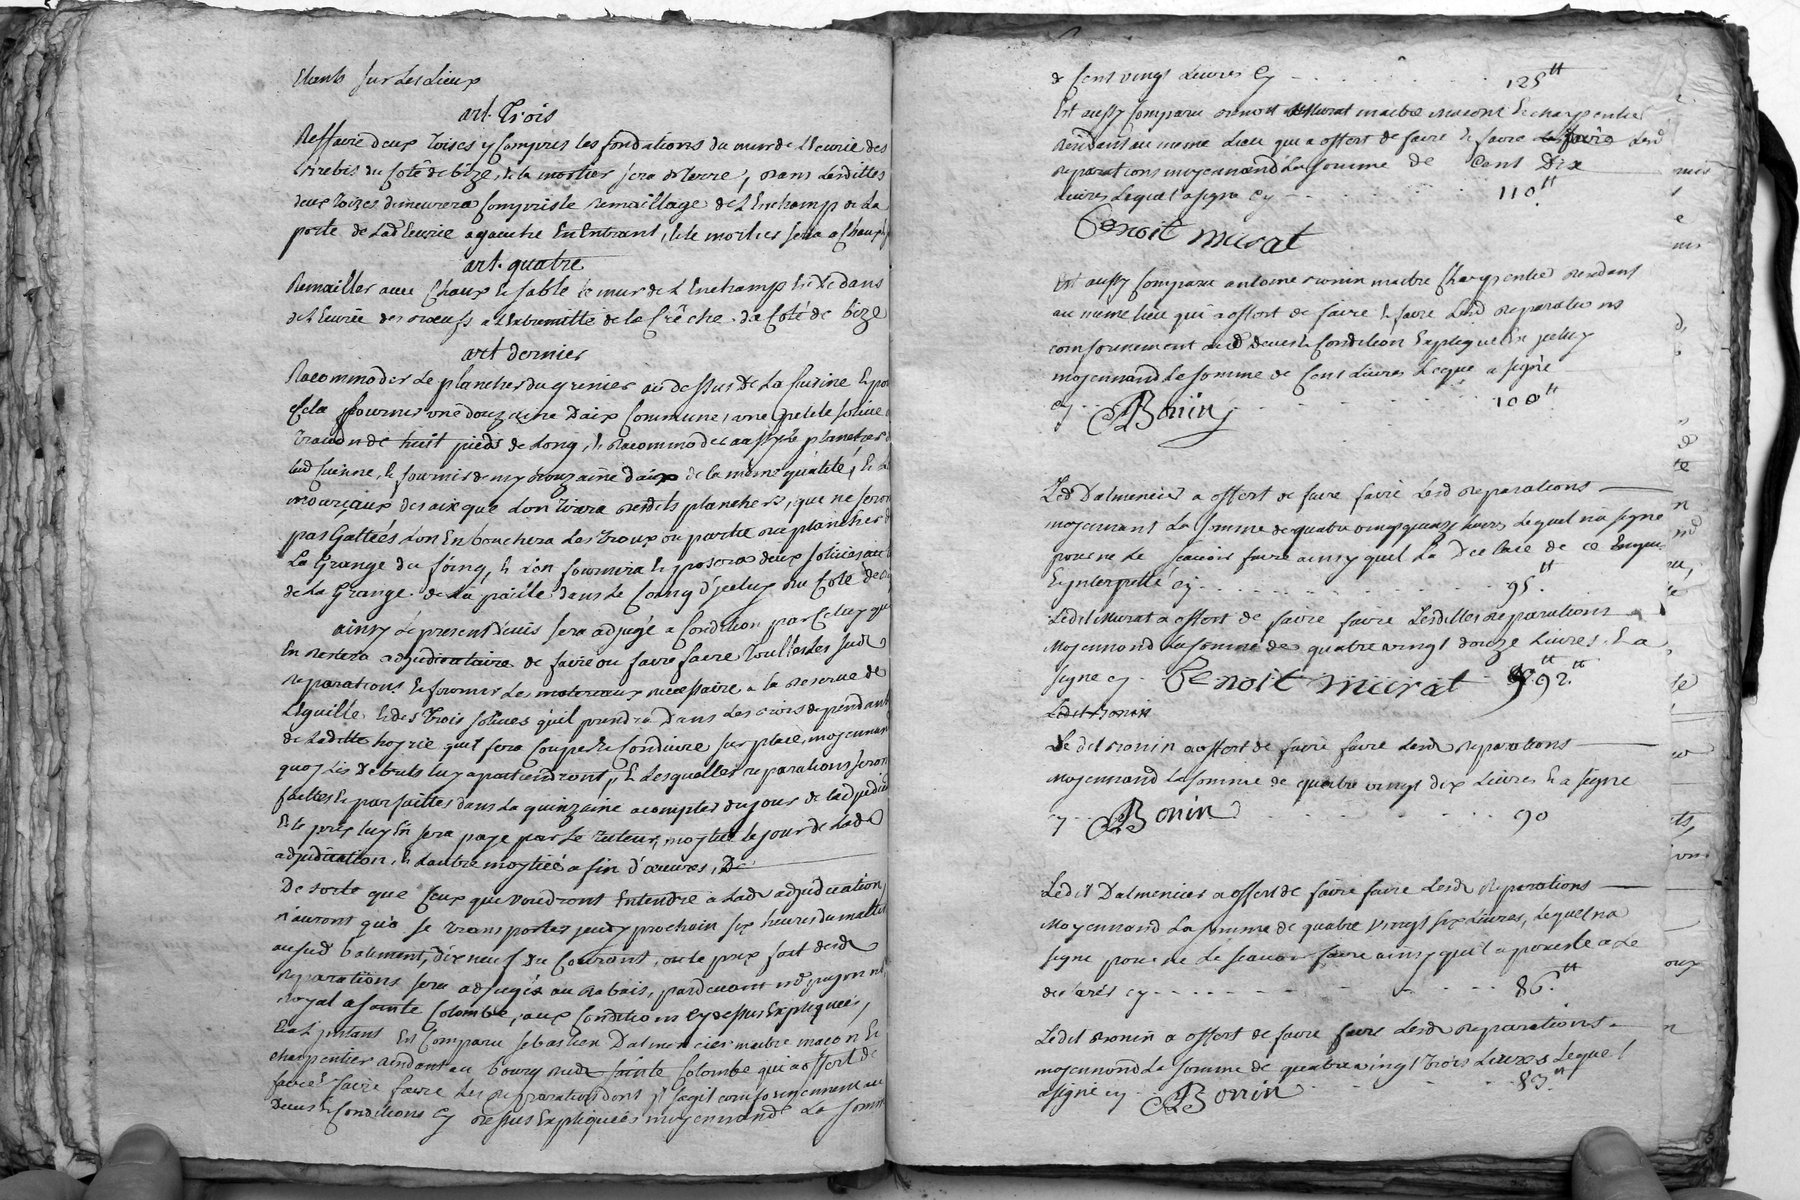 Etants sur Les Lieux
art. Trois
Reffaire deux Toises y Compris les fondations du mur de L'Ecurie des
Brebis du Coté de bize, & le mortier sera de terre, dans Lesdittes
deux toizes demeurera Compris le remaillage de L'Enchamp de La
porte de Lad. Ecurie a gauche En Entrant, & le mortier sera a Chaux
art. quatre
Remailler avec Chaux & sable le mur de L'Enchamp dedans
de L'Ecurie des boeufs a L'Extremitté de la Crêche du Coté de bize
art dernier
Racommoder Le plancher du grenier au dessus de La Cuisine &
fournir une douzaine D'aix Commune, une petite solive
de huit pieds de Long, & Racommoder aussy Le plancher
Lad. Cuisine, & fournir demy douzaine d'aix de la même qualité, &
morceaux des aix que Lon tirera desdits planchers, que ne seron
pas Gattées Lon En bouchera Les Troux ou partie du plancher
La Grange du foing, & Lon fournira & posera deux solives au
de La Grange de La paille dans Le Coing d'jcelluy du Coté de
ainsy Le present devis sera adjugé a Condition par Celuy qui
En restera adjudicataire de faire ou faire faire Touttes Les sud.
reparations & fournir Les materiaux necessaire a la Reserve de
L'Eguille & des Trois solives qu'il prendra Dans Les bois dependant
de Laditte hoirie quil fera Couper & Conduire sur place, moyennant
quoy Les Debuts luy apartiendront, & Lesquelles reparations seron
faittes & parfaittes dans La quinzaine a compter du jour de Ladjudica
Et le prix luy En sera payé par Le Tuteur, moytié le jour de Lad.
adjudication, & Lautre moytiée a fin d'œuvres,
De sorte que Ceux que voudront Entendre a Lad. adjudication
n'auront qu'a se transporter jeudy prochain six heures du mattin
au sud. batiment, dix neuf du Courant, ou le prix fait desd.
reparations sera adjugé au Rabais, pardevant nd.
royal a sainte Colombe, aux Conditions Cy dessus Expliquées,
Et a L'jnstant Est Comparu sebastien Dalmencier maitre macon &
charpentier residant au bourg dud. sainte Colombe qui a offert de
faire & faire faire Les reparations dont s'agit conformement au
Devis & Conditions Cy dessus Expliquées moyennand La somme
& Cent vingt Livres Cy - - - 125tt
Est aussy Comparu benoit Murat maitre macon & charpentier
Residant au meme Lieu qui a offert de faire & faire faire Lesd.
reparations moyennand La somme de Cent Dix
Livres Lequel a signé Cy - - - 110tt
Benoit murat
Est aussy Comparu antoine bonin maitre Charpentier residant
au meme lieu qui a offert de faire & faire Lesd. reparations
conformement aud. Devis & Condition Expliquée En jcelluy
moyennand La somme de Cent Livres Lequel a signé
cy - - - 100tt
Bonin
Led. Dalmencier a offert de faire faire Lesd. reparations
moyennant La somme de quatre vingt quinze Livres Lequel n'a signé
pour ne Le scavoir faire ainsy quil La Declaré de ce Enquis
& ynterpellé cy - - - 95tt
Ledit Murat a offert de faire faire Lesdittes reparations
Moyennand La somme de quatre vingt douze Livres & a
signé cy - Benoit murat 92tt
Ledit Bonin
Ledit Bonin a offert de faire faire Lesd. reparations
Moyennand La somme de quatre vingt dix Livres & a signé
cy - Bonin - - - 90
Ledit Dalmencier a offert de faire faire Lesd. Reparations
Moyennand La somme de quatre vingt six Livres, Lequel na
signé pour ne Le scavoir faire ainsy quil a
cy - - - 86tt
Ledit bonin a offert de faire faire Lesd. reparations
moyennand La somme de quatre vingt trois Livres Lequel
a signé cy - Bonin - - - 83tt